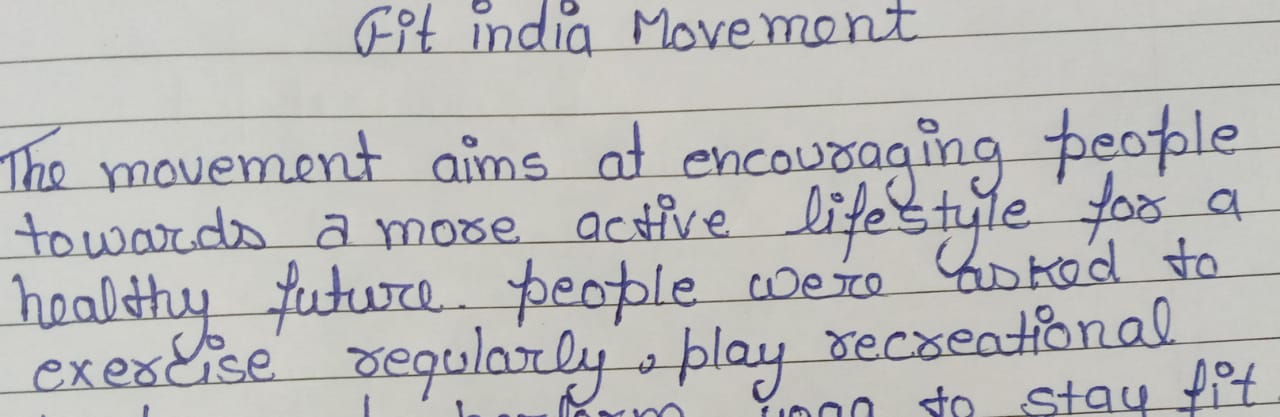 Fit india Movement
The movement aims at encouraging people
towards a more active lifestyle for a
healthy future. people were asked to
exercise regularly, play recreational
to stay fit